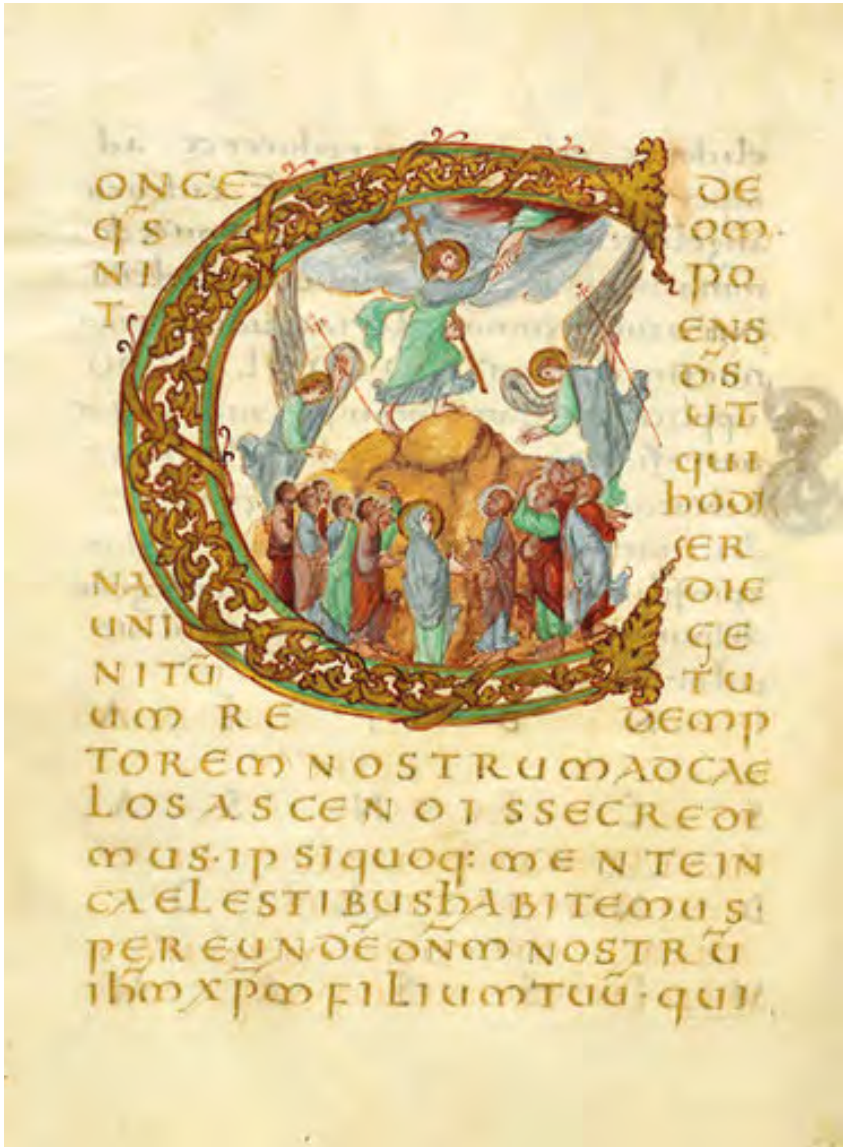 CONCE DE
q̄S OM·
NI PO
T ENS
D̄S
UT
QUI
hODI
ER
NA DIE
UNI GE
NITŪ TU
UM RE DEMP
TOREM NOSTRUM AD CAE
LOS ASCENDISSE CREDI
MUS· IPSI QUOQ: MENTE IN
CAELESTIBUS hABITEMUS·
PER EUNDĒ DN̄M NOSTRŪ
IhM̄ XP̄M FILIUM TUŪ· QUI